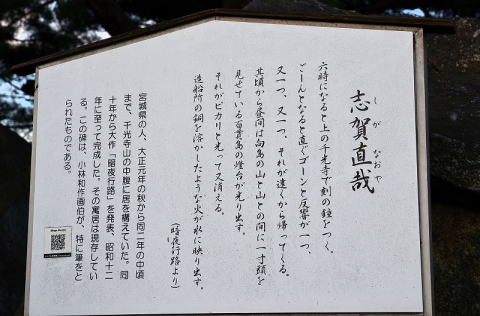 志賀直哉
しがなおや
六時になると上の千光寺で刻の鐘をつく。
ごーんとなると直ぐゴーンと反響が一つ、
又一つ、又一つ、それが遠くから帰ってくる。
其頃から昼間は向島の山と山との間に一寸頭を
見せている百貫島の燈台が光り出す。
それがピカリと光って又消える。
造船所の銅を溶かしたような火が水に映り出す。
(暗夜行路より)
宮城県の人、大正元年の秋から同二年の中頃
まで、千光寺山の中腹に居を構えていた。同
十年から大作「暗夜行路」を発表、昭和十二
年に至って完成した。その寓居は現存してい
る。この碑は、小林和作画伯が、特に筆をと
られたものである。